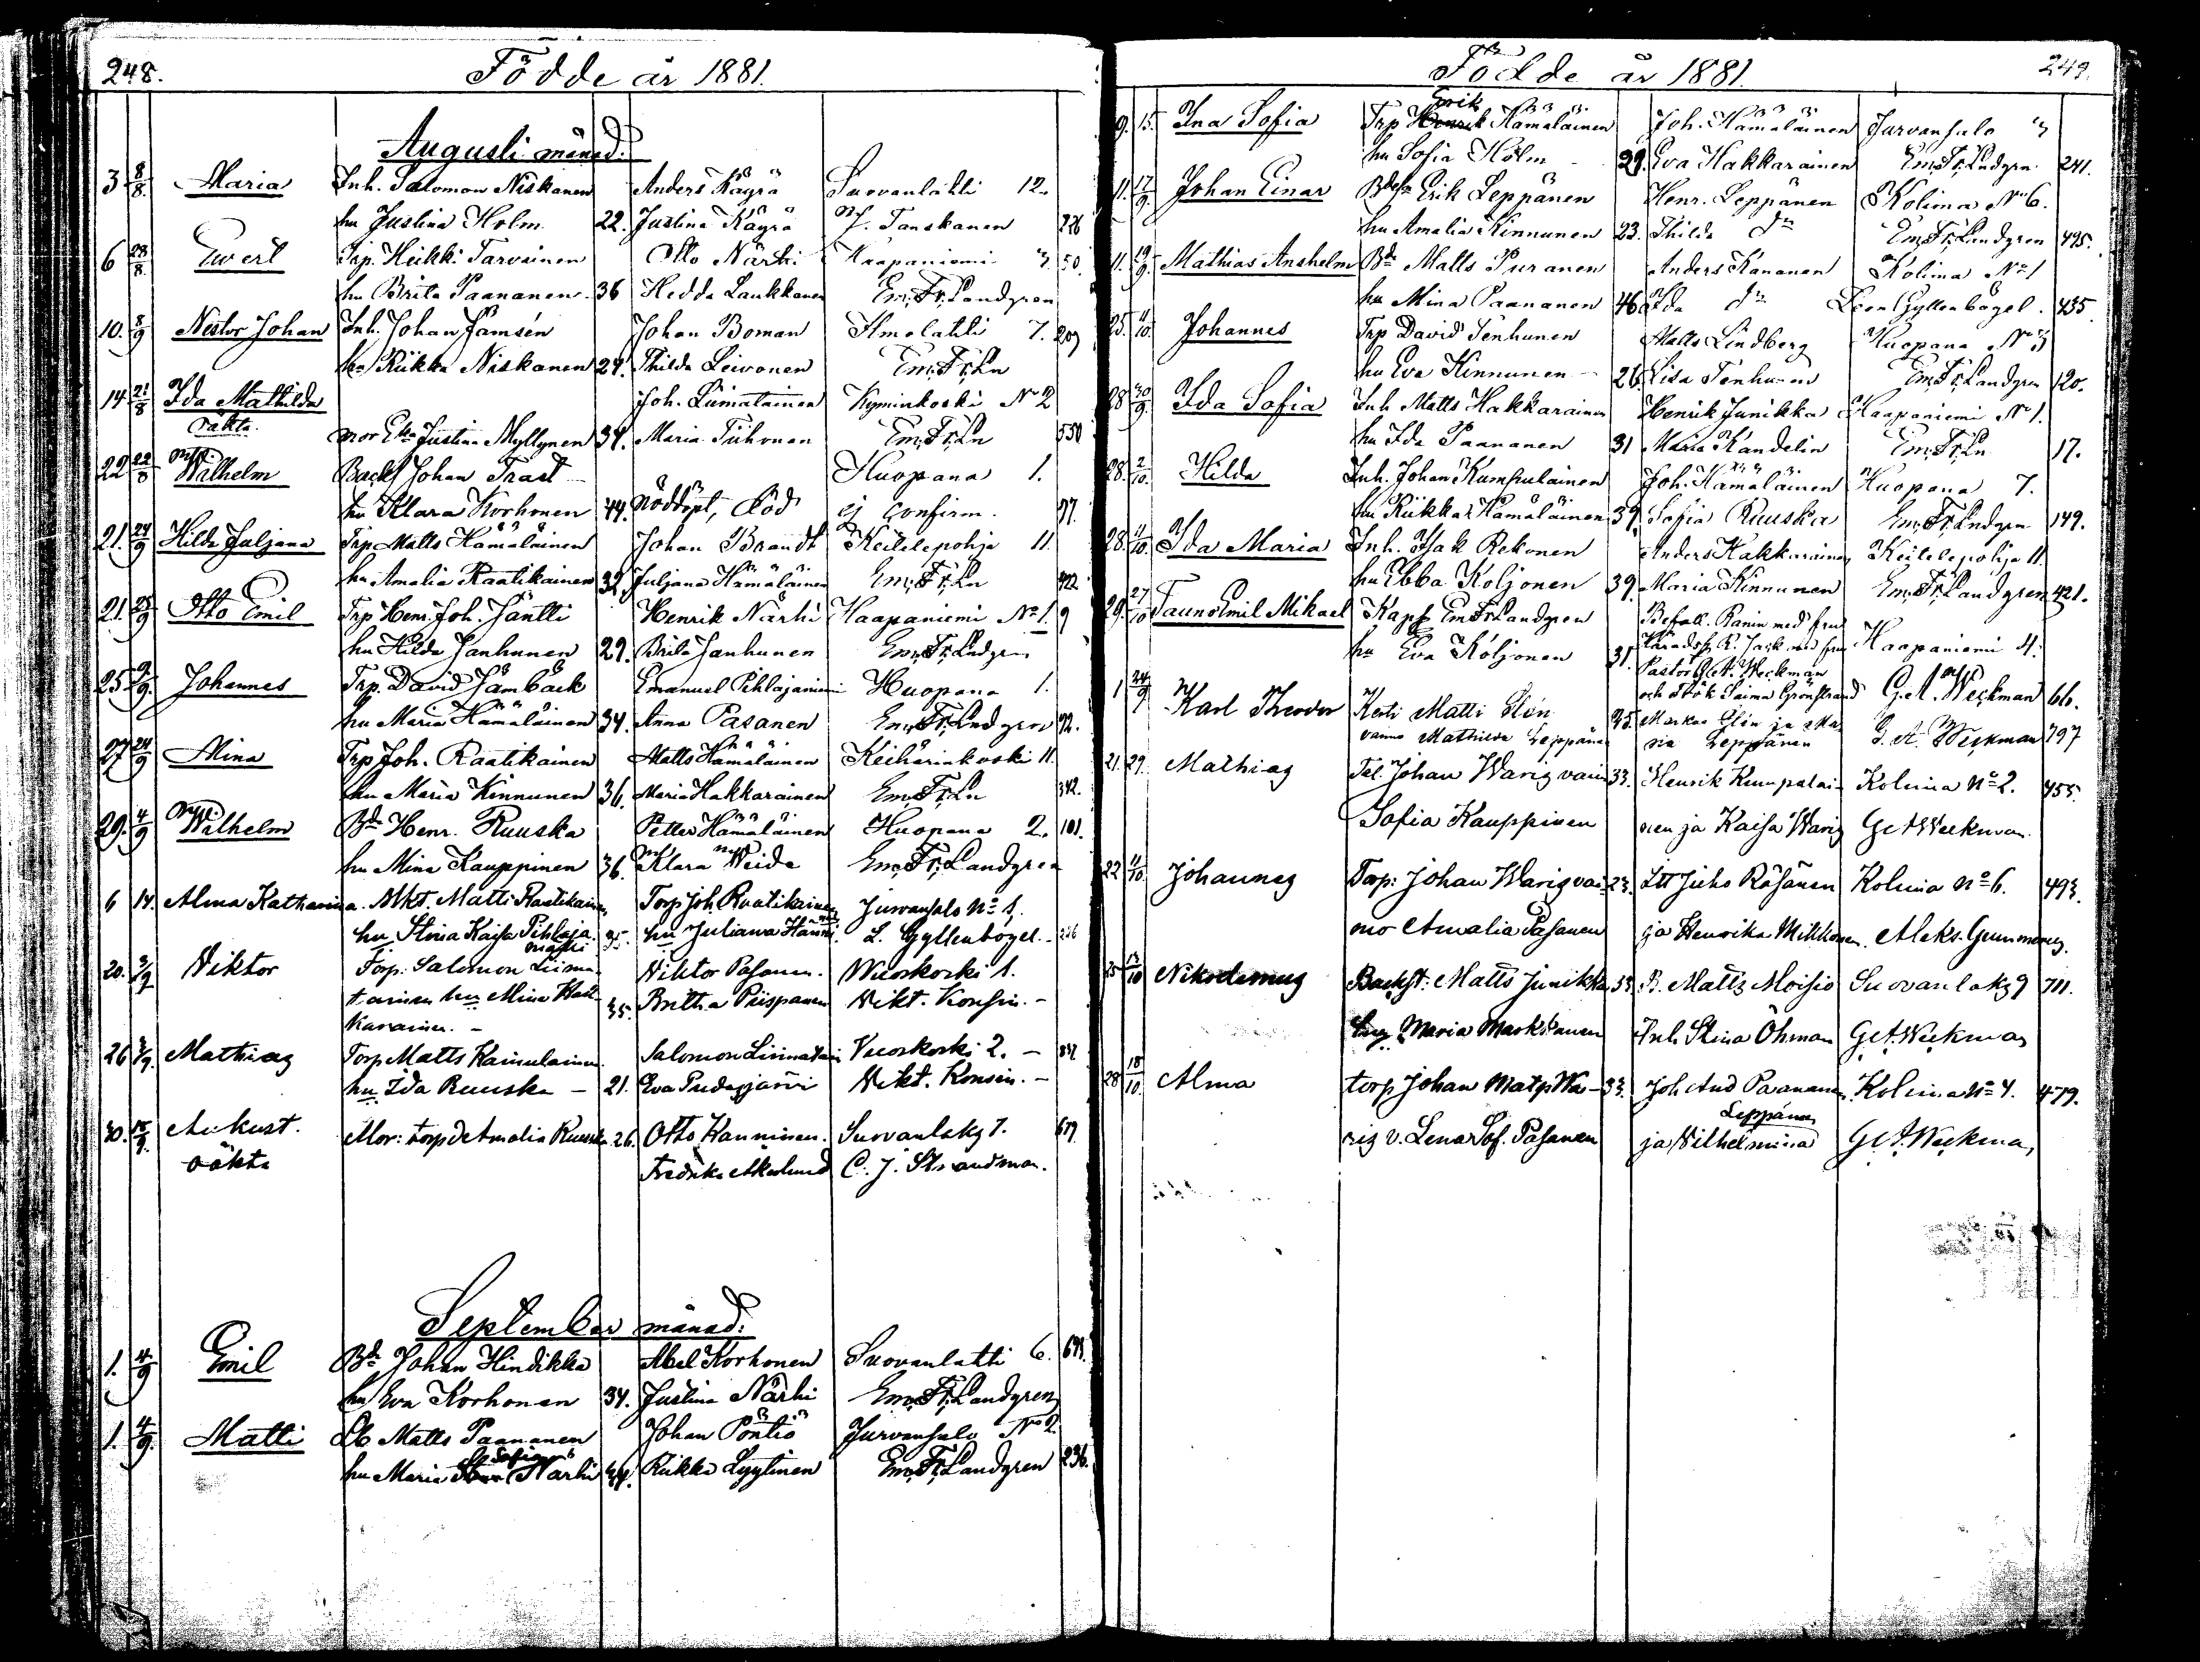 248.
Födde år 1881.
Augusti månad.
3 8/8. Maria Inh. Salomon Niskanen Anders Käyrä Suovanlahti 12.
hu Justina Holm. 22. Justina Käyrä J. Tanskanen
6 28/8. Ewert Trp. Heikki Tarvainen Otto Närhi Haapaniemi 3 50.
hu Brita Paananen 36 Hedda Laukkanen Em. Fr. Landgren
10. 8/9 Nestor Johan Inh. Johan Jämsén Johan Boman Ilmolahti 7. 209
hu Riikka Niskanen 24. Thilda Leivonen Em. Fr. Ln
14 21/8 Ida Mathilda Joh. Liimatainen Kyminkoski No 2
oäkta. mor Justina Myllynen 34. Maria Tiihonen Em. Fr. Ln 550
22 22/8 Wilhelm Backs Johan Trast Huopana 1.
hu Klara Korhonen 44. nöddöpt, död ej confirm. 97.
21. 24/9 Hilda Juljana Trp Matts Hämäläinen Johan Brandt Keitelepohja 11.
hu Amalia Raatikainen 32. Juljana Hämäläinen Em. Fr. Ln 422
21. 25/9 Otto Emil Trp Henr. Joh. Jäntti Henrik Närhi Haapaniemi No 1. 9
hu Hilda Janhunen 29. Brita Janhunen Em. Fr. Lndgren
25 9/9. Johannes Trp. David Jämbäck Emanuel Pihlajaniemi Huopana 1.
hu Maria Hämäläinen 34. Anna Pasanen Em. Fr. Lndgren 92.
27 24/9 Mina Trp Joh. Raatikainen Matts Hämäläinen Keihärinkoski 11.
hu Maria Kinnunen 36. Maria Hakkarainen Em. Fr. Ln 342.
29. 4/9 Wilhelm Bd Henr. Ruuska Petter Hämäläinen Huopana 2. 101.
hu Mina Kauppinen 36. Klara Weide Em. Fr. Landgren
6 14. Alma Katharina Matti Raatikainen Torp. Joh. Raatikainen Jurvansalo No 1.
hu Stina Kaisa Pihlaja- 35. hu Juliana L. Gyllenbögel.
20. 3/9 Viktor Torp. Salomon Liima- Viktor Pasanen. Wuoskoski 1.
tainen hu Mina Hak- 35. Britha Piispanen Vikt. Konsin.
karainen.
26 3/9. Mathias Torp Matts Kainulainen. Salomon Liimatain Vuoskoski 2.
hu Ida Ruuska 21. Eva Pudasjärvi Vikt. Konsin.
30. 15/9. August. Mor: torpd. Amalia Ruuska 26. Otto Kanninen. Suovanlaks 7. 679
oäkta Fredrika Akerlund C. J. Strandman.
September månad.
1. 4/9 Emil Bd Johan Hindikka Abel Korhonen Suovanlahti 6.
hu Eva Korhonen 34. Justina Närhi Em. Fr. Landgren
1. 4/9. Matti Matts Paananen Johan Pöntiö Jurvansalo No 2
hu Maria Sofia Närhi 44. Riikka Lyytinen Em. Fr. Landgren 236.
Födde år 1881.
249.
9. 15. Ina Sofia Trp Erik Hämäläinen Joh. Hämäläinen Jurvansalo 3
hu Sofia Holm 29. Eva Hakkarainen Em. Fr. Lndgren 241.
11. 17/9. Johan Einar Erik Leppänen Henr. Leppänen Kolima No 6.
hu Amalia Kinnunen 23. Thilda do Em. Fr. Landgren 495.
11. 19/9. Mathias Anshelm Bd Matts Puranen Anders Kananen Kolima No 1
hu Mina Paananen 46 Ida do Leon Gyllenbögel. 435
25. 11/10. Johannes Trp David Tenhunen Matts Lindberg Huopana No 3
hu Eva Kinnunen 26. Lisa Tenhunen Em. Fr. Landgren 120.
28 30/9. Ida Sofia Inh Matts Hakkarainen Henrik Junikka Haapaniemi No 1.
hu Ida Paananen 31 Maria Kandelin Em. Fr. Ln 17.
28. 2/10. Hilda Inh. Johan Kumpulainen Joh. Hämäläinen Huopana 7.
hu Riikka Hämäläinen 39. Sofia Ruuska Em. Fr. Lndgren 149.
28. 11/10. Ida Maria Inh. Isak Rekonen Anders Hakkarainen Keitelepohja 11.
hu Ebba Koljonen 39. Maria Kinnunen Em. Fr. Landgren 421.
29. 27/10 Tauno Emil Mikael Kapl Em Fr Landgren Befall. Ranin med fru
hu Eva Koljonen 31. Häradss. R. Jack med fru Haapaniemi 4.
Pastor G. A. Weckman
1 24/9 Karl Theodor Kesti Matti Glén och Frök Saima Grönstrand G. A. Weckman 66.
vaimo Mathilda Leppänen 35. Markus Glén ja Ma-
ria Leppänen G. A. Weckman 797
21. 29. Mathias Til. Johan Warig vaim 33. Henrik Kumpulai- Kolima No 2. 455.
Sofia Kauppinen nen ja Kaisa Warig G A Weckman
22 11/10. Johannes Torp: Johan Warig vai- 23. Itt Juho Räsänen Kolima No 6. 493.
mo Amalia Pasanen ja Henrika Mikkonen. Aleks. Gummerus.
25 13/10 Nikodemus Backst: Matts Junikka 33 B. Matts Moisio Suovanlaks 9 711.
hu Maria Markkanen Inh. Stina Öhman G. A. Weckman
28 18/10. Alma torp. Johan Matp Wa- 33. Joh And Paananen Kolima No 4. 479.
rig v. Lena Sof. Pasanen ja Wilhelmina Leppänen G. A. Weckman